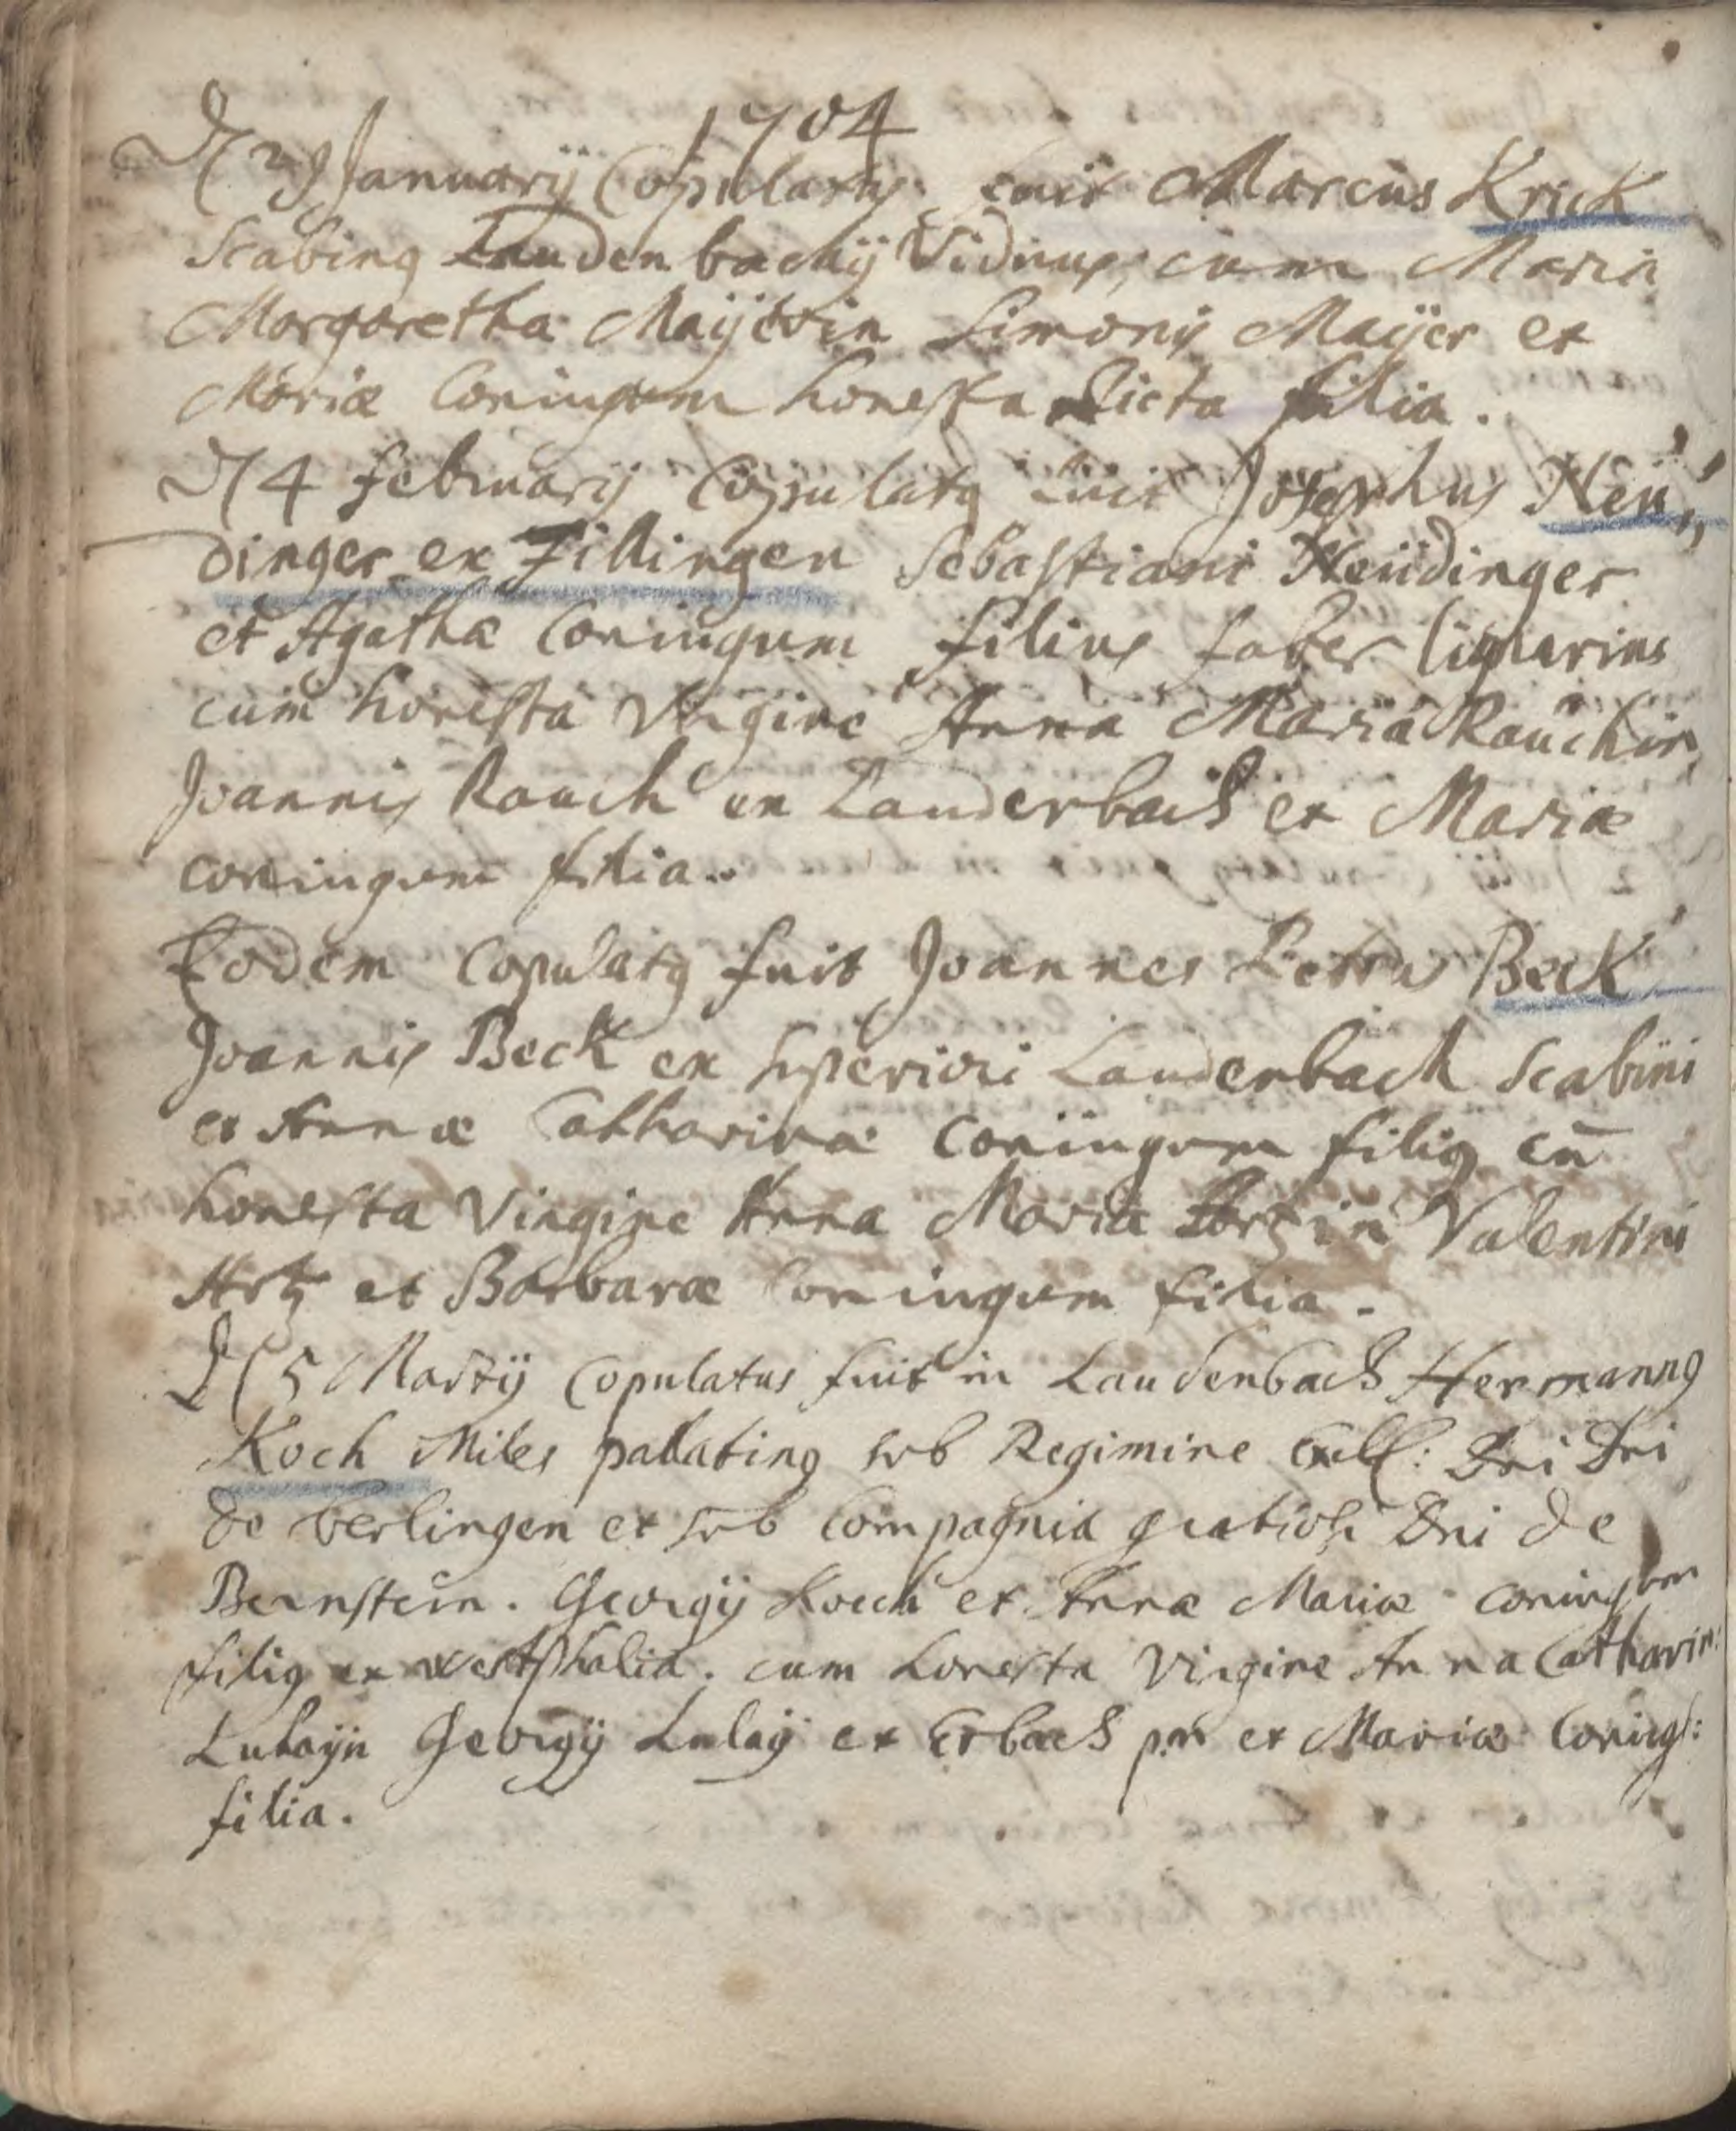 1704
D 29 Januarij Copulatus fuit Marcus Krick
Scabinus Laudenbachij Viduus, cum Maria
Margaretha Maijerin Simonis Maijer et
Mariæ Coniugum honesta relicta filia.
D 4 februarij Copulatus fuit Josephus Neu„
dinger ex Fillingen Sebastiani Neüdinger
et Agathæ Coniugum filius faber lignarius
cum honesta Virgine Anna Maria Rauchin
Joannis Rauch ex Lauderbach et Mariæ
coniugum filia.
Eodem Copulatus fuit Joannes Petrus Beck
Joannis Beck ex superiori Lauderbach Scabini
et Annæ Catharinæ Coniugum filius cū
honesta Virgine Anna Maria Valentini
Artz et Barbaræ Coniugum filia.
D 5 Martij Copulatus fuit in Laudenbach Hermannus
Koch Miles pallatinus sub Regimine Excell: Dni Dni
de Verlingen et sub Compagnia gratiosi Dni de
Bernstein. Georgij Koch et Annæ Mariæ coniugum
filius ex westphalia. cum honesta Virgine Anna Catharin:
Lulaÿn Georgij Lulaÿ ex Erbach et Mariæ Coniug:
filia.